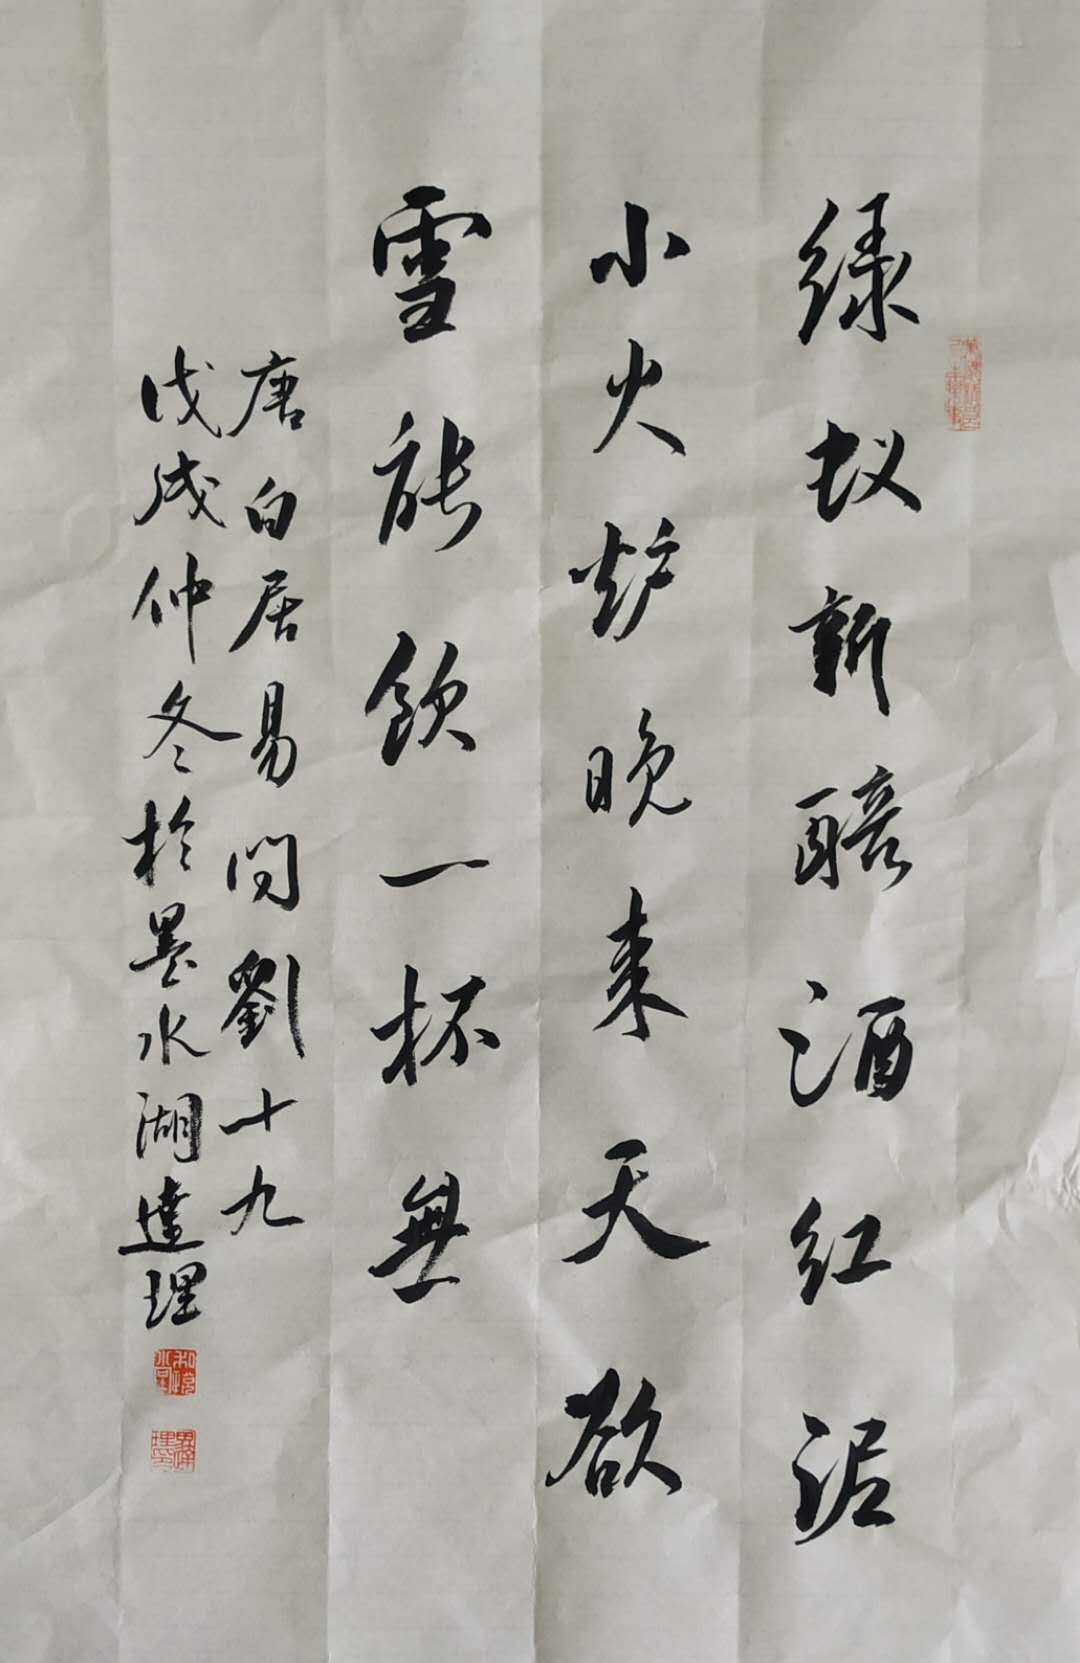 绿蚁新醅酒红泥
小火炉晚来天欲
雪能饮一杯無
唐白居易问劉十九
戊戌仲冬於墨水湖達理